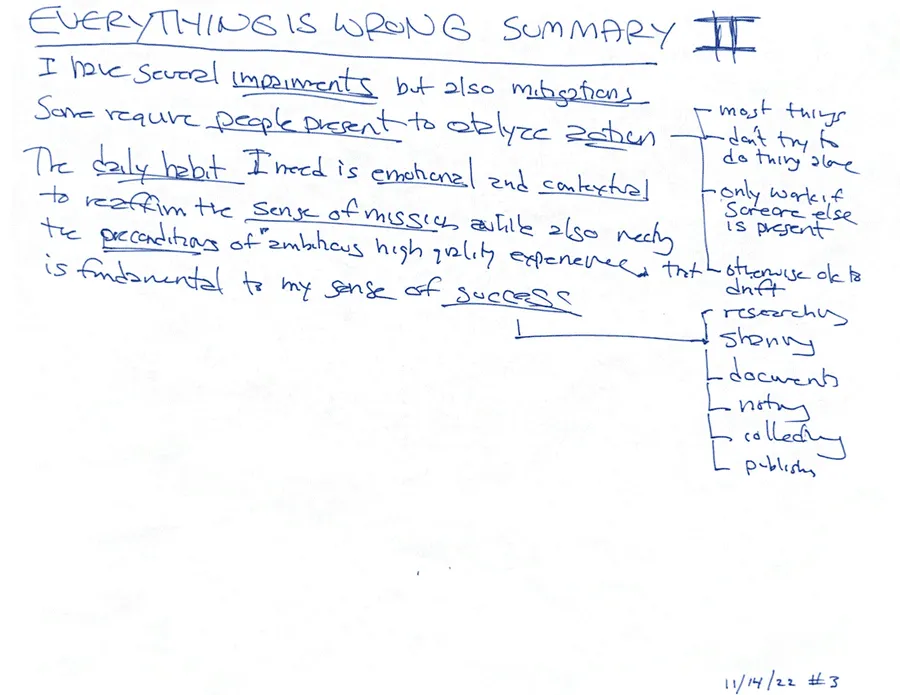 EVERYTHING IS WRONG SUMMARY II
I have several impairments but also mitigations
Some require people present to catalyze action
The daily habit I need is emotional and contextual
to reaffirm the sense of mission while also meeting
the preconditions of "ambitious high quality experiences, that
is fundamental to my sense of success
most things
don't try to
do thing alone
only work if
someone else
is present
otherwise ok to
drift
researching
sharing
documents
noting
collecting
publishing
11/14/22 #3